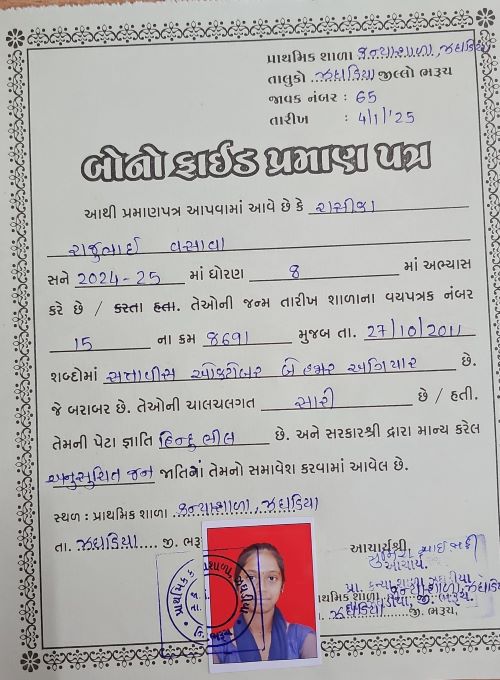 પ્રાથમિક શાળા કન્યાશાળા, ઝઘડિયા
તાલુકો ઝઘડિયા જીલ્લો ભરૂચ
જાવક નંબર : 65
તારીખ : 4/1/'25
બોનોફાઈડ પ્રમાણ પત્ર
આથી પ્રમાણપત્ર આપવામાં આવે છે કે રાસીકા
રાજુભાઈ વસાવા
સને 2024-25 માં ધોરણ 8 માં અભ્યાસ
કરે છે / કરતા હતા. તેઓની જન્મ તારીખ શાળાના વયપત્રક નંબર
15 ના ક્રમ 8691 મુજબ તા. 27/10/2011
શબ્દોમાં સત્તાવીસ ઓક્ટોબર બે હજાર અગિયાર છે.
જે બરાબર છે. તેઓની ચાલચલગત સારી છે / હતી.
તેમની પેટા જ્ઞાતિ હિન્દુ ભીલ છે. અને સરકારશ્રી દ્વારા માન્ય કરેલ
અનુસુચિત જન જાતિમાં તેમનો સમાવેશ કરવામાં આવેલ છે.
સ્થળ : પ્રાથમિક શાળા કન્યાશાળા, ઝઘડિયા
તા. ઝઘડિયા જી. ભરૂચ
આચાર્યશ્રી
આચાર્ય
પ્રા. કન્યા શાળા ઝઘડીયા
પ્રાથમિક શાળા, કન્યાશાળા, ઝઘડિયા
ઝઘડિયા જી. ભરૂચ.